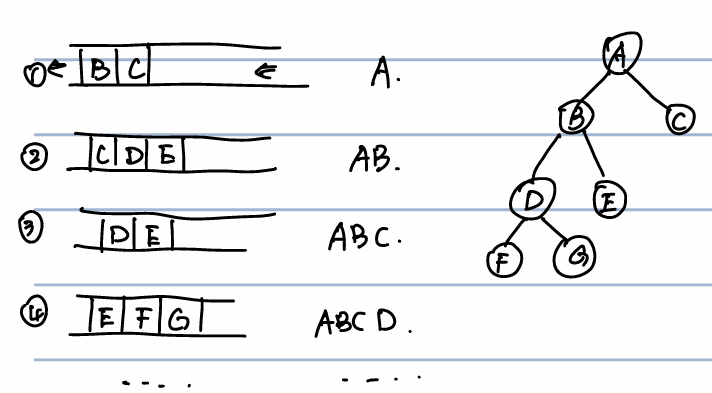 ① ← B C ← A.
② C D E AB.
③ D E ABC.
④ E F G ABCD.
---- ----
A
B C
D E
F G